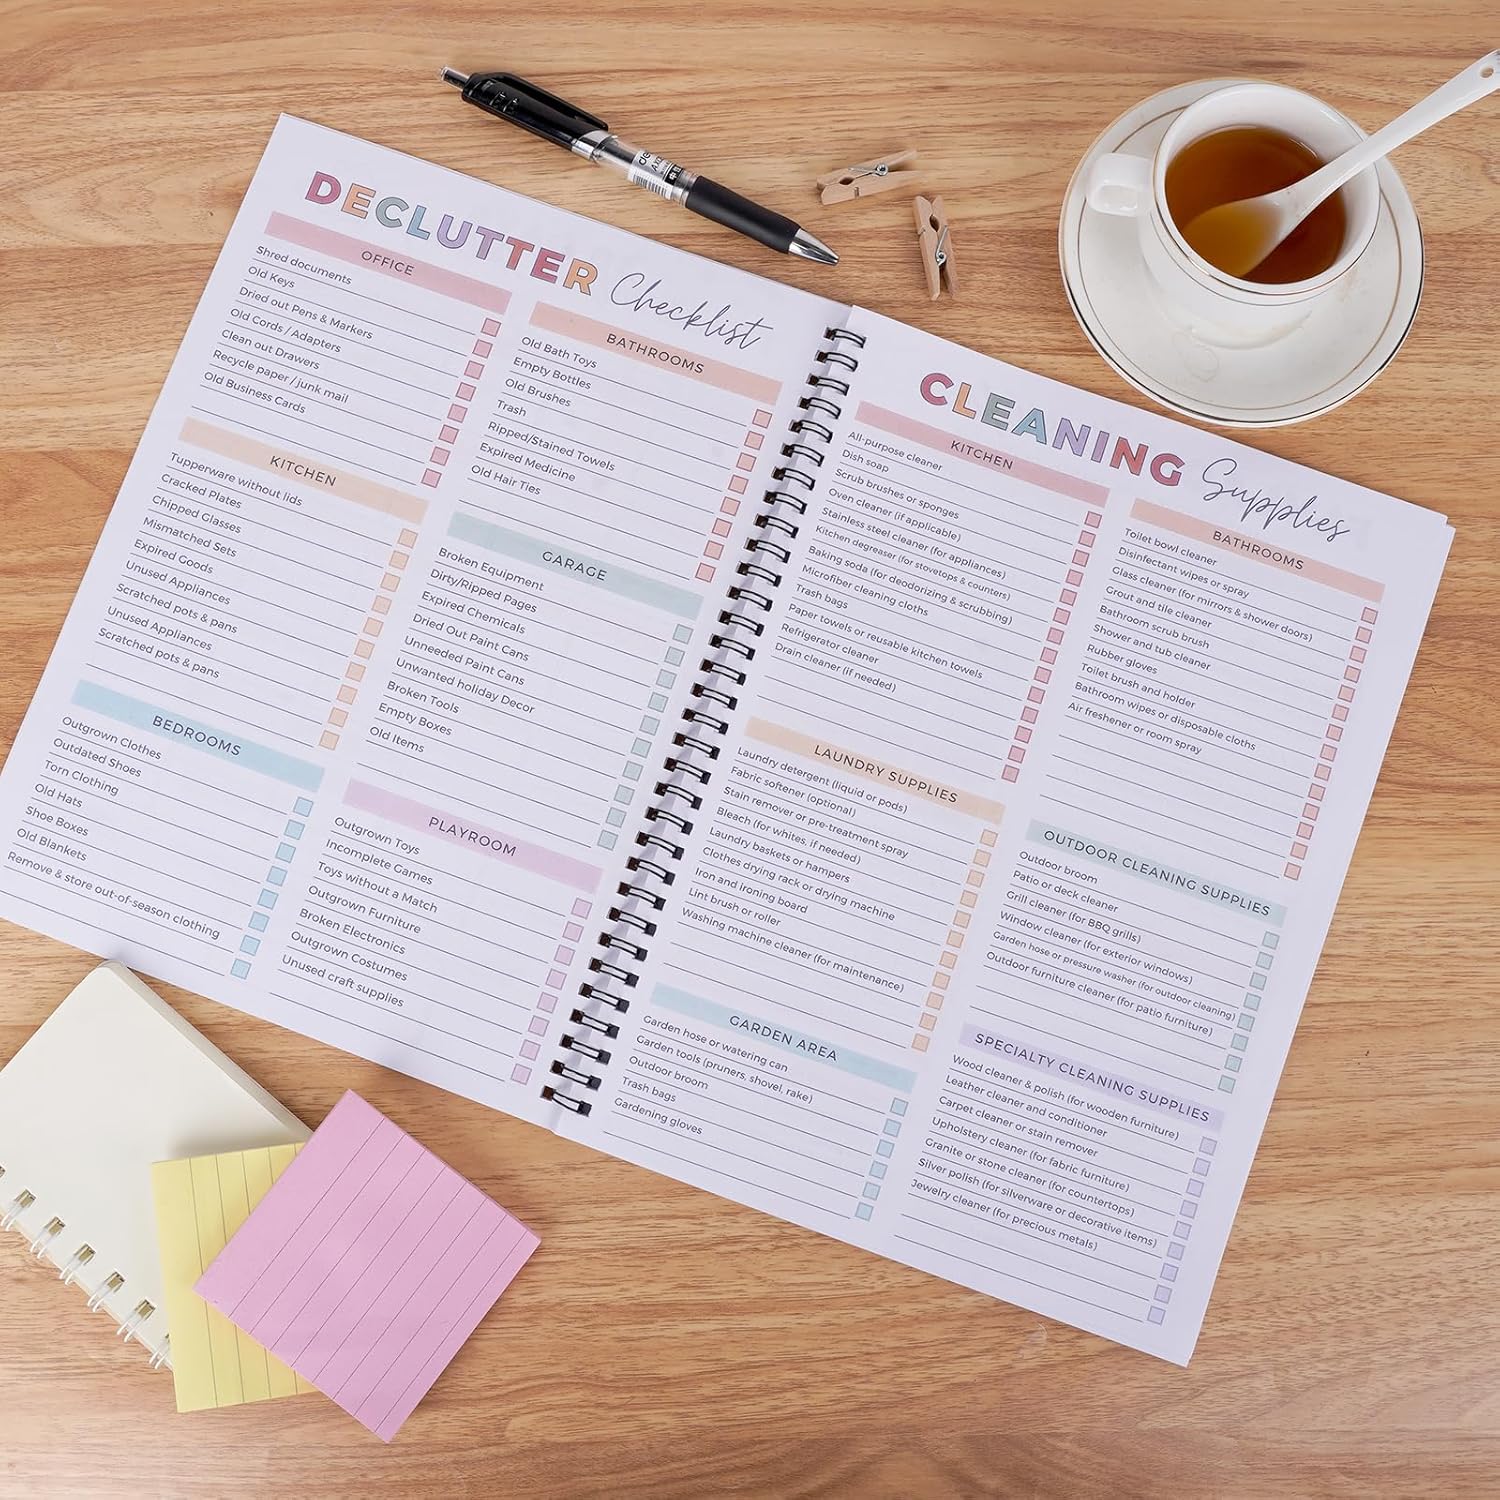 DECLUTTER Checklist
OFFICE
Shred documents
Old Keys
Dried out Pens & Markers
Old Cords / Adapters
Clean out Drawers
Recycle paper / junk mail
Old Business Cards
KITCHEN
Tupperware without lids
Cracked Plates
Chipped Glasses
Mismatched Sets
Expired Goods
Unused Appliances
Scratched pots & pans
Unused Appliances
Scratched pots & pans
BEDROOMS
Outgrown Clothes
Outdated Shoes
Torn Clothing
Old Hats
Shoe Boxes
Old Blankets
Remove & store out-of-season clothing
BATHROOMS
Old Bath Toys
Empty Bottles
Old Brushes
Trash
Ripped/Stained Towels
Expired Medicine
Old Hair Ties
GARAGE
Broken Equipment
Dirty/Ripped Pages
Expired Chemicals
Dried Out Paint Cans
Unneeded Paint Cans
Unwanted holiday Decor
Broken Tools
Empty Boxes
Old Items
PLAYROOM
Outgrown Toys
Incomplete Games
Toys without a Match
Outgrown Furniture
Broken Electronics
Outgrown Costumes
Unused craft supplies
CLEANING Supplies
KITCHEN
All-purpose cleaner
Dish soap
Scrub brushes or sponges
Oven cleaner (if applicable)
Stainless steel cleaner (for appliances)
Kitchen degreaser (for stovetops & counters)
Baking soda (for deodorizing & scrubbing)
Microfiber cleaning cloths
Trash bags
Paper towels or reusable kitchen towels
Refrigerator cleaner
Drain cleaner (if needed)
LAUNDRY SUPPLIES
Laundry detergent (liquid or pods)
Fabric softener (optional)
Stain remover or pre-treatment spray
Bleach (for whites, if needed)
Laundry baskets or hampers
Clothes drying rack or drying machine
Iron and ironing board
Lint brush or roller
Washing machine cleaner (for maintenance)
GARDEN AREA
Garden hose or watering can
Garden tools (pruners, shovel, rake)
Outdoor broom
Trash bags
Gardening gloves
BATHROOMS
Toilet bowl cleaner
Disinfectant wipes or spray
Glass cleaner (for mirrors & shower doors)
Grout and tile cleaner
Bathroom scrub brush
Shower and tub cleaner
Rubber gloves
Toilet brush and holder
Bathroom wipes or disposable cloths
Air freshener or room spray
OUTDOOR CLEANING SUPPLIES
Outdoor broom
Patio or deck cleaner
Grill cleaner (for BBQ grills)
Window cleaner (for exterior windows)
Garden hose or pressure washer (for outdoor cleaning)
Outdoor furniture cleaner (for patio furniture)
SPECIALTY CLEANING SUPPLIES
Wood cleaner & polish (for wooden furniture)
Leather cleaner and conditioner
Carpet cleaner or stain remover
Upholstery cleaner (for fabric furniture)
Granite or stone cleaner (for countertops)
Silver polish (for silverware or decorative items)
Jewelry cleaner (for precious metals)